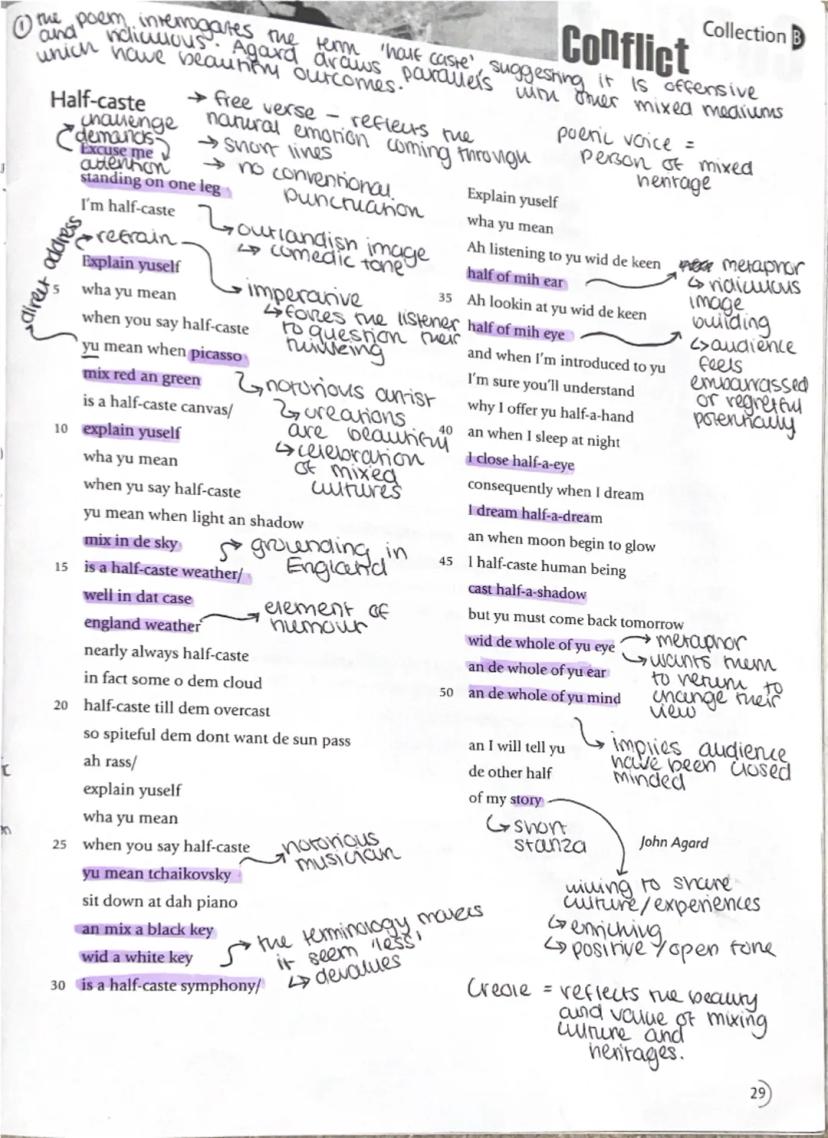 Collection B
Conflict
① the poem interrogates the term 'half caste' suggesting it is offensive
and ridiculous. Agard draws parallels with other mixed mediums
which have beautiful outcomes.
Half-caste
→ free verse – reflects the
natural emotion coming through
→ short lines
→ no conventional
punctuation
poetic voice =
person of mixed
heritage
challenge
demands
Excuse me
attention
standing on one leg
I'm half-caste
outlandish image
↳ comedic tone
direct address
refrain
Explain yuself
imperative
↳ forces the listener
to question their
thinking
5 wha yu mean
when you say half-caste
yu mean when picasso
mix red an green
notorious artist
↳ creations
are beautiful
↳ celebration
of mixed
cultures
is a half-caste canvas/
10 explain yuself
wha yu mean
when yu say half-caste
yu mean when light an shadow
mix in de sky
grounding in
England
15 is a half-caste weather/
well in dat case
england weather
element of
humour
nearly always half-caste
in fact some o dem cloud
20 half-caste till dem overcast
so spiteful dem dont want de sun pass
ah rass/
explain yuself
wha yu mean
25 when you say half-caste
yu mean tchaikovsky
notorious
musician
sit down at dah piano
an mix a black key
wid a white key
the terminology makes
it seem 'less'
↳ devalues
30 is a half-caste symphony/
Explain yuself
wha yu mean
Ah listening to yu wid de keen
half of mih ear
metaphor
↳ ridiculous
image
building
↳ audience
feels
embarrassed
or regretful
potentially
35 Ah lookin at yu wid de keen
half of mih eye
and when I'm introduced to yu
I'm sure you'll understand
why I offer yu half-a-hand
40 an when I sleep at night
I close half-a-eye
consequently when I dream
I dream half-a-dream
an when moon begin to glow
45 I half-caste human being
cast half-a-shadow
but yu must come back tomorrow
wid de whole of yu eye
metaphor
↳ wants them
to return to
change their
view
an de whole of yu ear
50 an de whole of yu mind
implies audience
have been closed
minded
an I will tell yu
de other half
of my story
↳ short
stanza
John Agard
willing to share
culture/experiences
↳ enriching
↳ positive/open tone
Creole = reflects the beauty
and value of mixing
culture and
heritages.
29